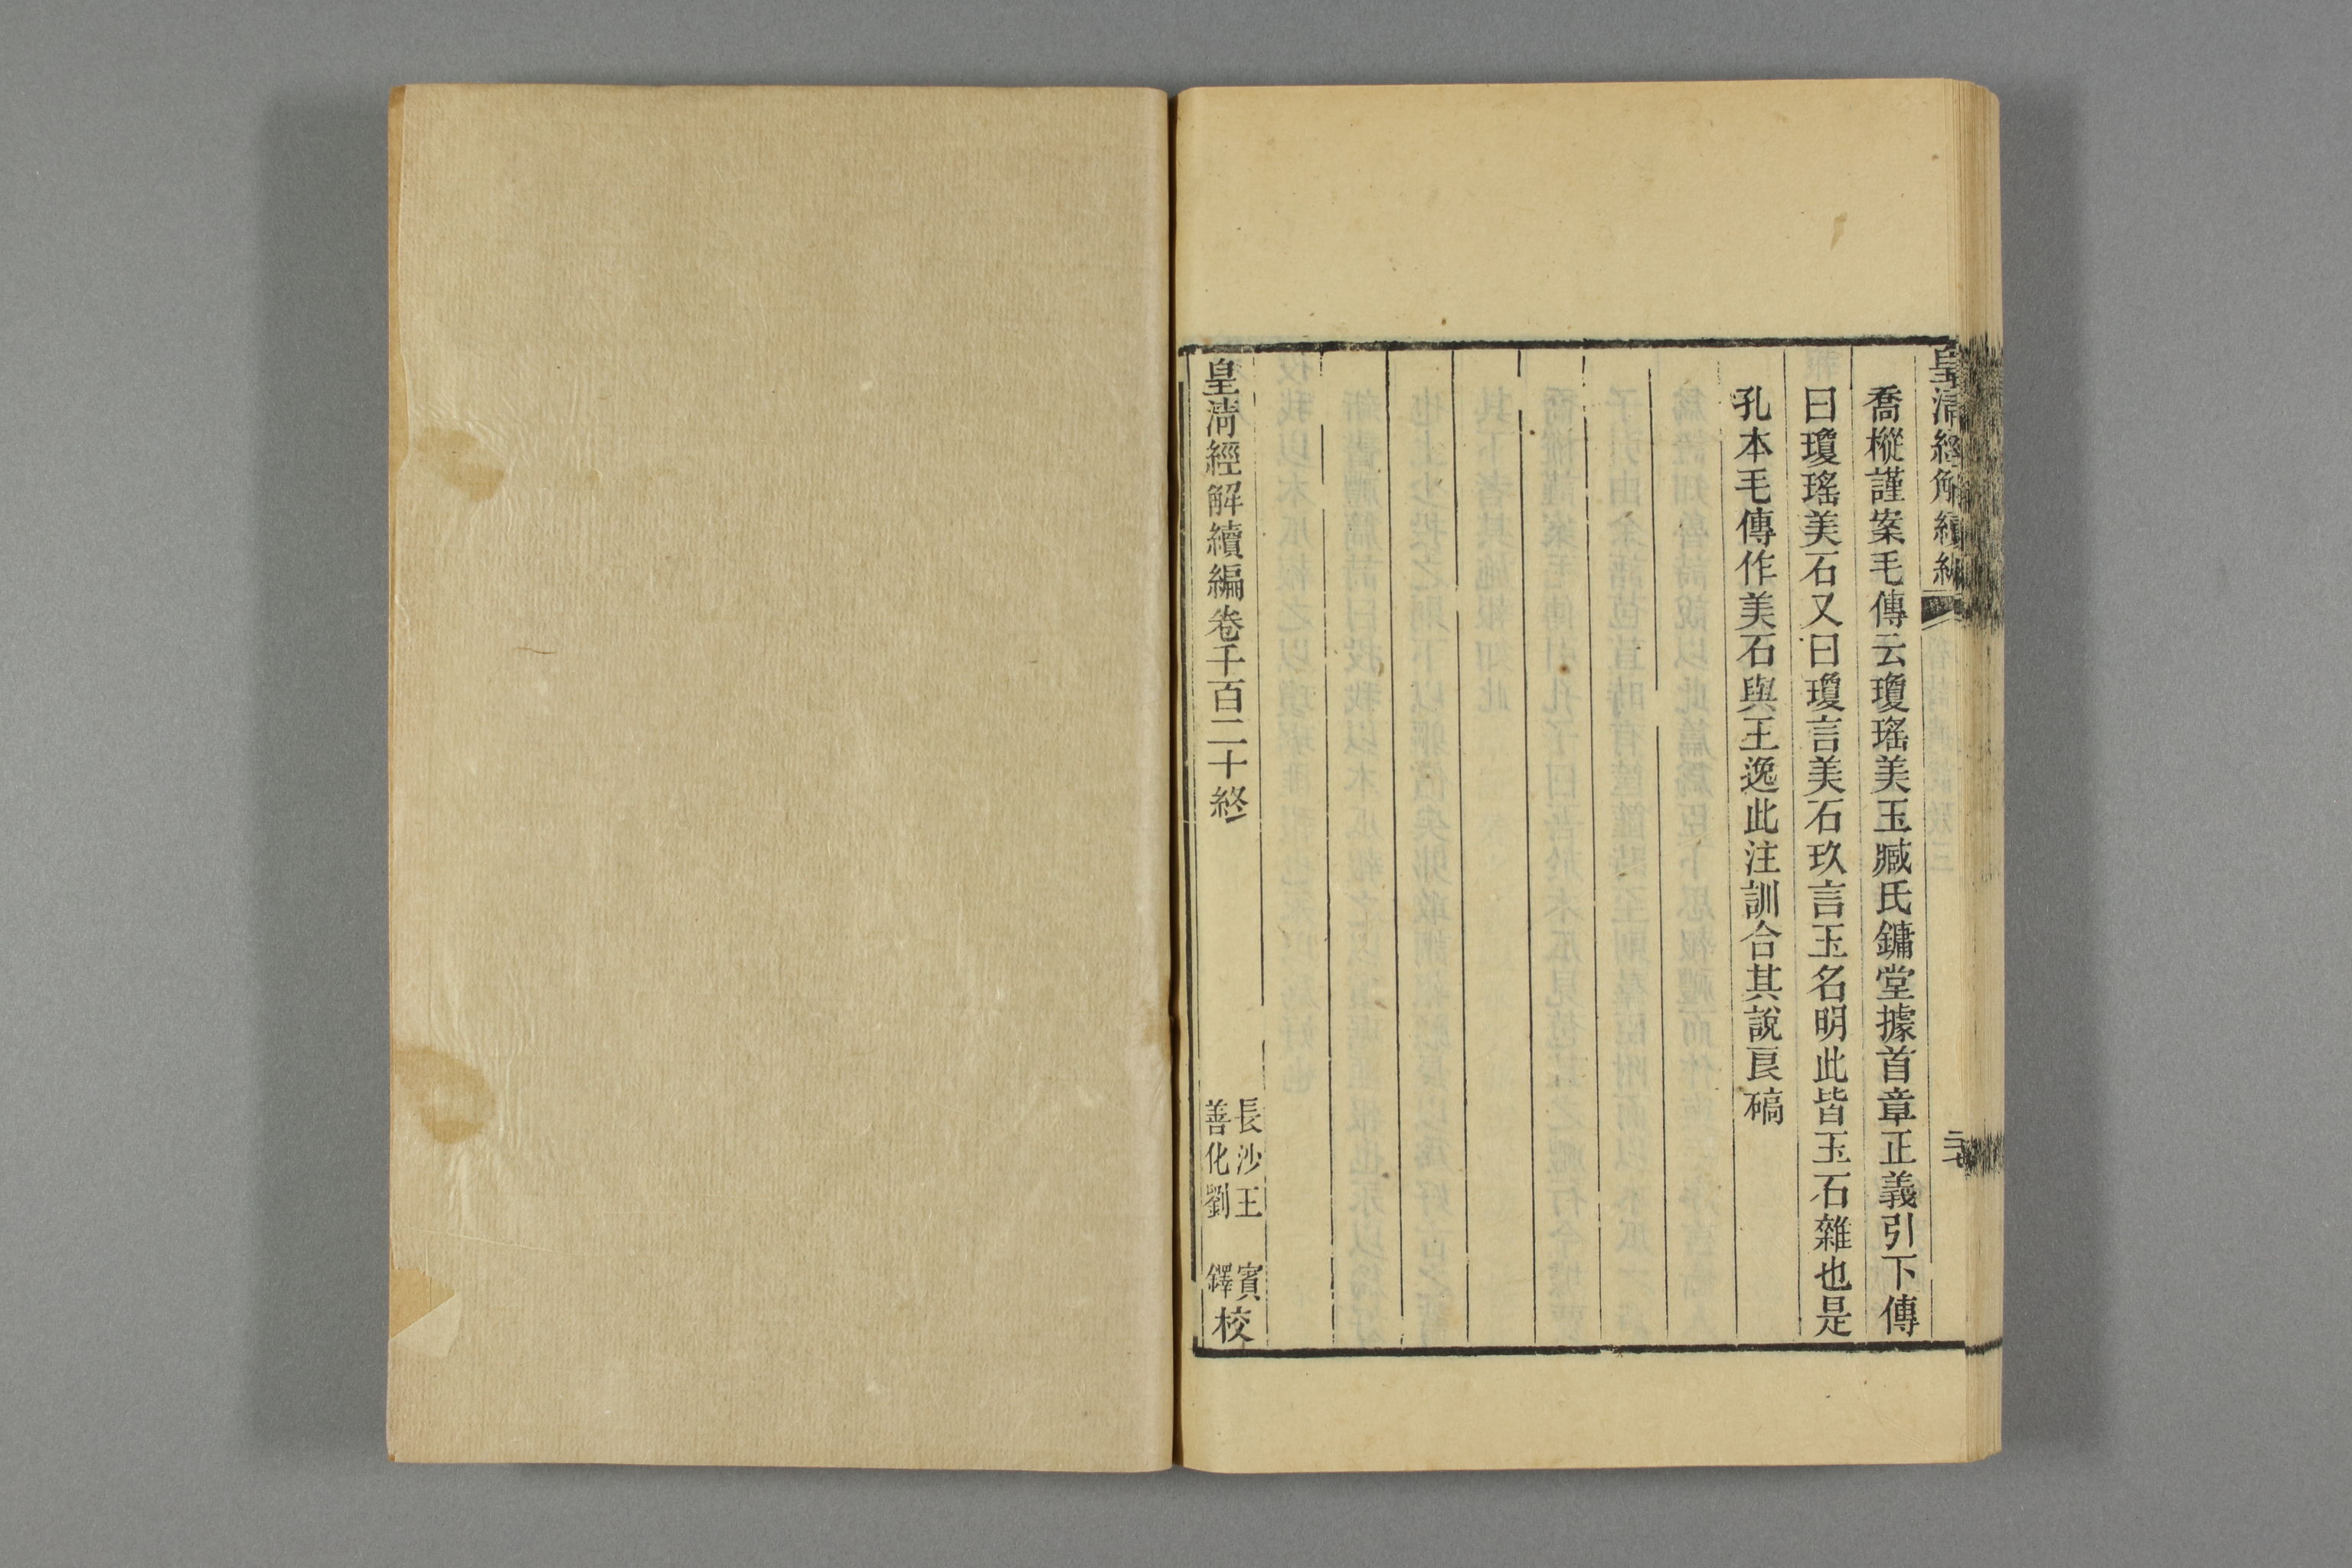 皇清經解續編
喬樅謹案毛傳云瓊瑤美玉臧氏鏞堂據首章正義引下傳
曰瓊瑤美石又曰瓊言美石玖言玉名明此皆玉石雜也是
孔本毛傳作美石與王逸此注訓合其說良碻
皇清經解續編卷千百二十終
長沙王賓
善化劉鐸
校